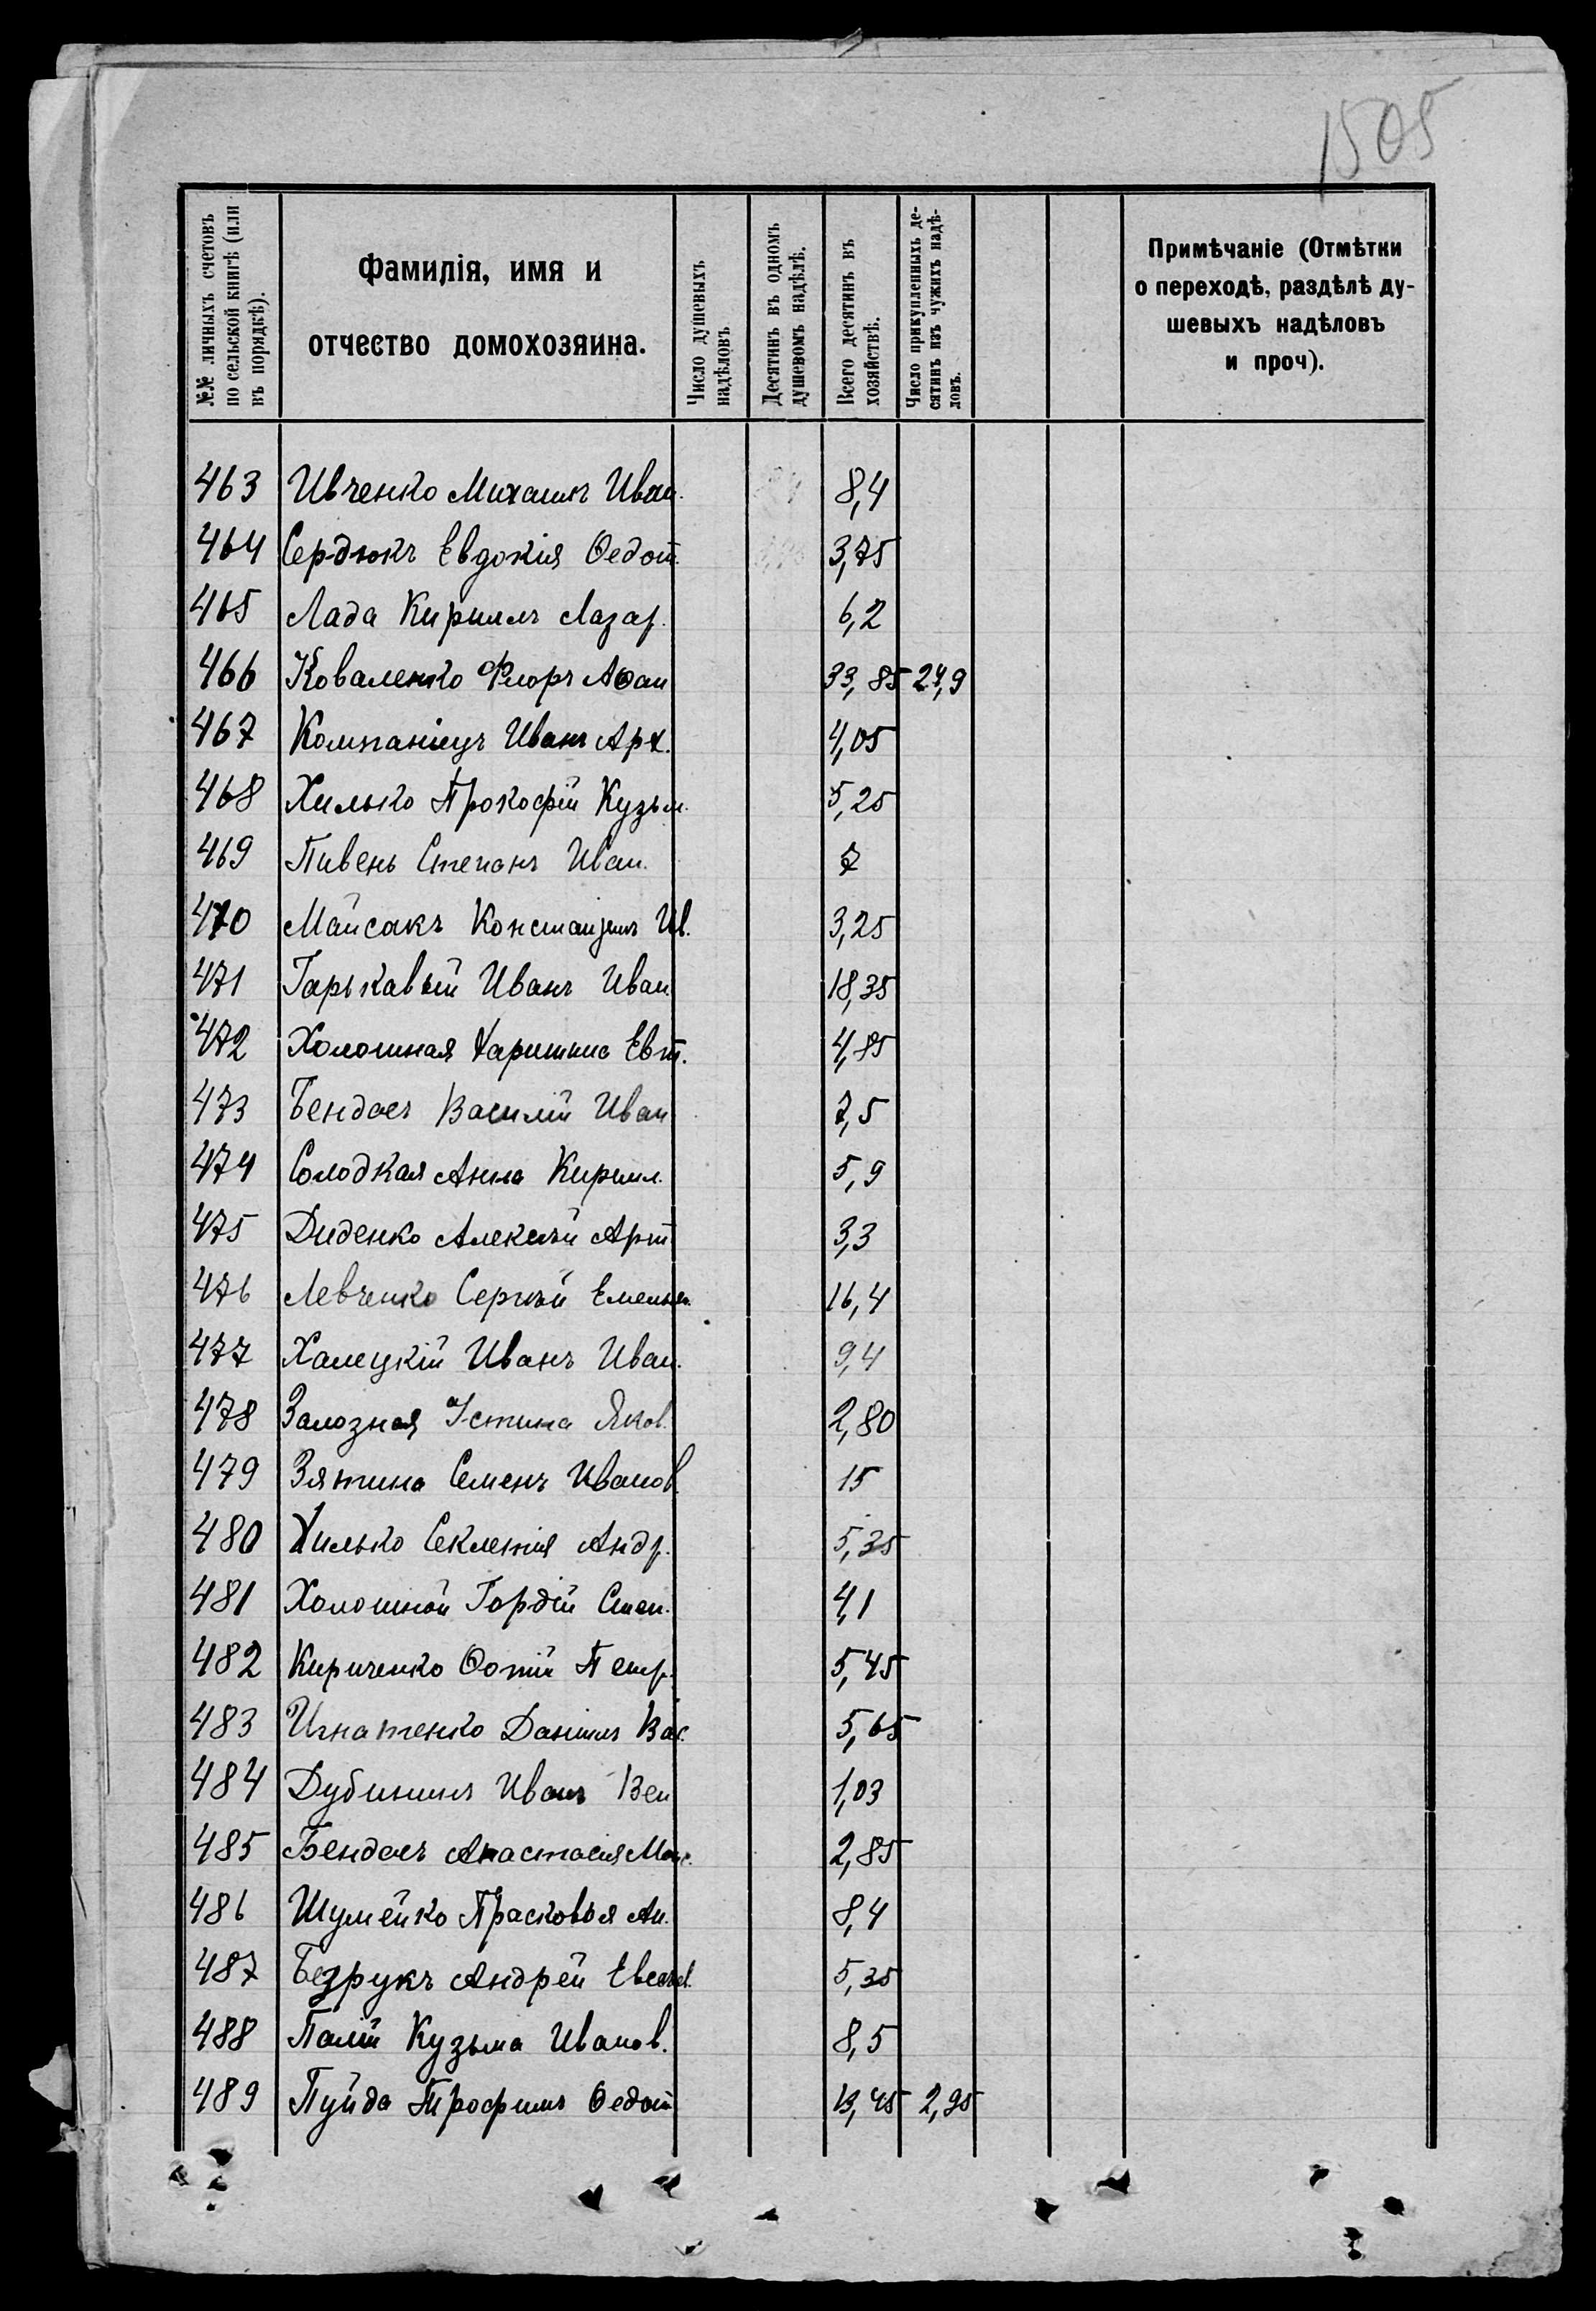 1505
№№ личныхъ счетовъ по сельской книгѣ (или въ порядкѣ).
Фамилія, имя и отчество домохозяина.
Число душевыхъ надѣловъ
Десятинъ въ одномъ душевомъ надѣлѣ.
Всего десятинъ въ хозяйствѣ.
Число прикупленныхъ десятинъ изъ чужихъ надѣловъ.
Примѣчаніе (Отмѣтки о переходѣ, раздѣлѣ душевыхъ надѣловъ и проч).
463 Ивченко Михаилъ Иван. 8,4
464 Сердюкъ Евдокія Ѳедот. 3,75
465 Лада Кириллъ Лазар. 6,2
466 Коваленко Флоръ Аѳан 33,85 27,9
467 Компаніецъ Иванъ Арх. 4,05
468 Хилько Прокофій Кузьм. 5,25
469 Пивень Степанъ Иван. 7
470 Майсакъ Константинъ Ив. 3,25
471 Гарькавый Иванъ Иван 18,35
472 Холошная Харитина Евт. 4,85
473 Бендасъ Василій Иван 7,5
474 Солодкая Анна Кирилл. 5,9
475 Диденко Алексѣй Арт 3,3
476 Левченко Сергѣй Емельян. 16,4
477 Халецкій Иванъ Иван. 9,4
478 Залозная Устина Яков. 2,80
479 Зятина Семенъ Иванов. 15
480 Хилько Секлетія Андр. 5,35
481 Холошной Гордій Степ. 4,1
482 Кириченко Ѳотій Петр. 5,45
483 Игнатенко Даніилъ Вас. 5,65
484 Дубининъ Иванъ Вен 1,03
485 Бендасъ Анастасія Макс. 2,85
486 Шумейко Прасковья Ан. 8,4
487 Безрукъ Андрей Евсев. 5,35
488 Палій Кузьма Иванов. 8,5
489 Пуйда Трофимъ Ѳедот 13,45 2,95